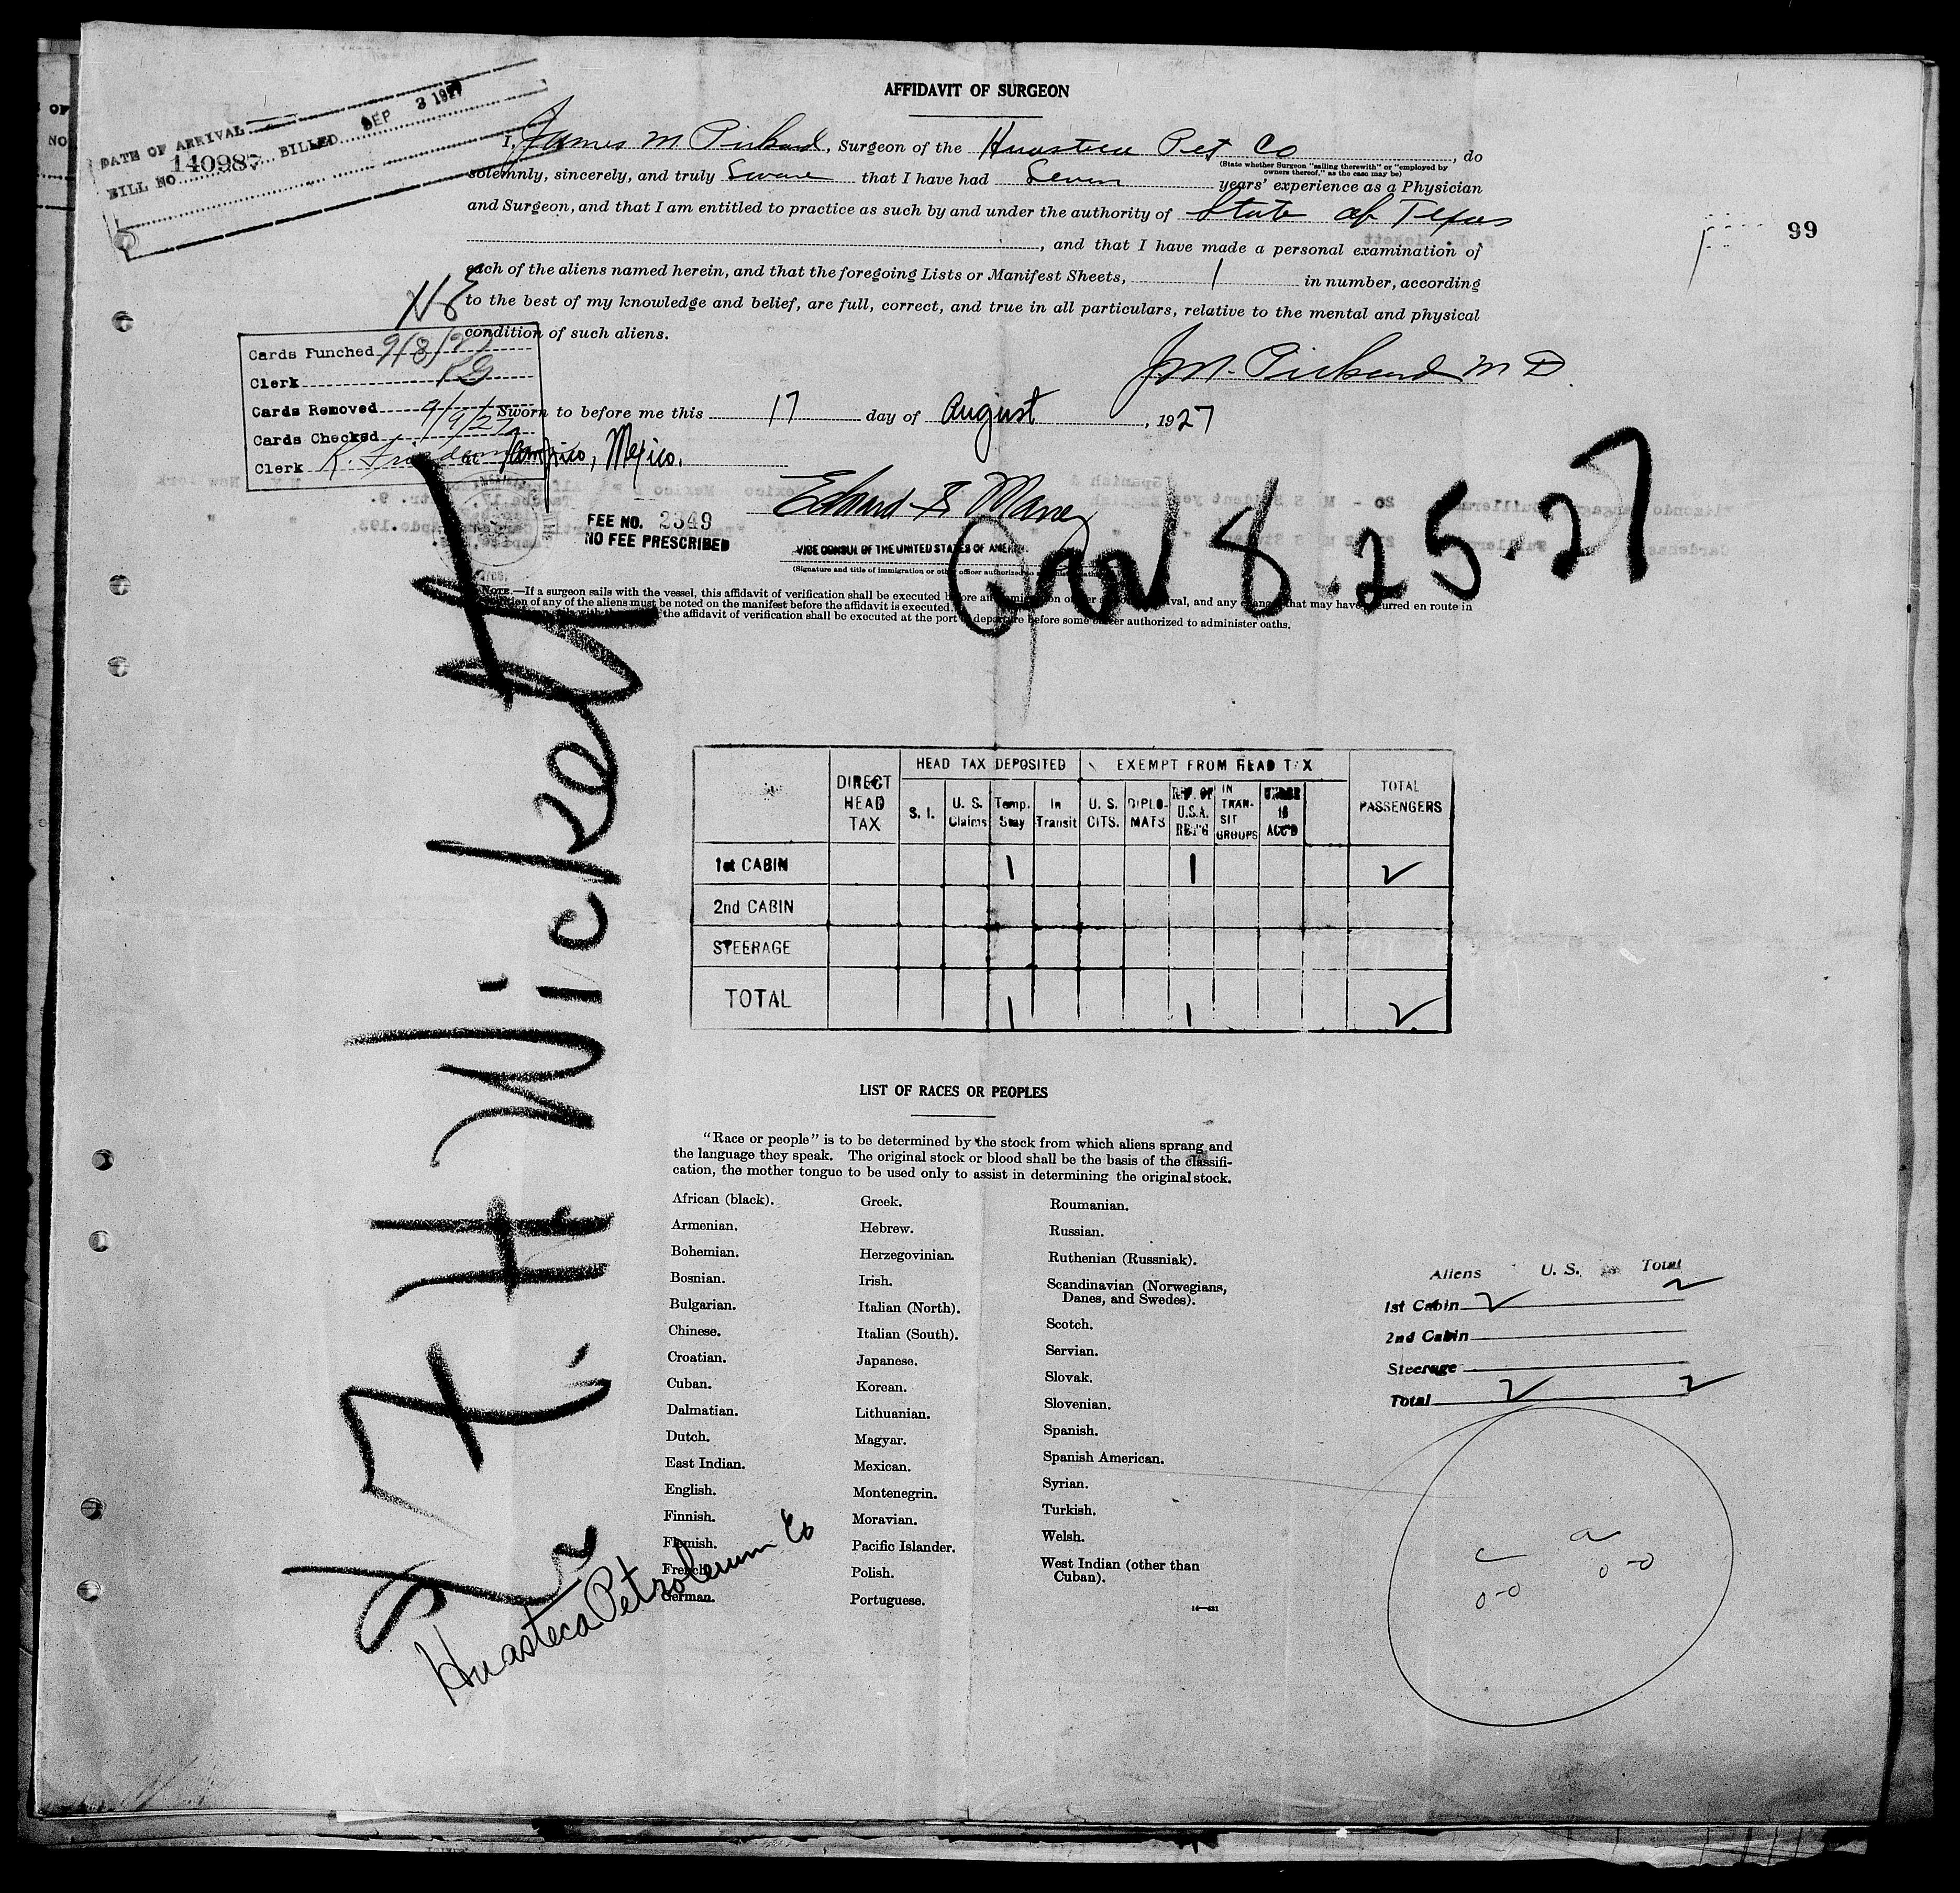 DATE OF ARRIVAL
BILL NO. 140987 BILLED SEP 3 1927
AFFIDAVIT OF SURGEON
I, James M Pickard, Surgeon of the Huasteca Pet Co, do
(State whether Surgeon "sailing therewith" or "employed by
owners thereof," as the case may be)
solemnly, sincerely, and truly Sware that I have had Seven years' experience as a Physician
and Surgeon, and that I am entitled to practice as such by and under the authority of State of Texas
, and that I have made a personal examination of
99
each of the aliens named herein, and that the foregoing Lists or Manifest Sheets, 1 in number, according
to the best of my knowledge and belief, are full, correct, and true in all particulars, relative to the mental and physical
condition of such aliens.
J.M. Pickard M D.
Cards Punched 9/8/27
Clerk
Cards Removed
Cards Checked 9/9/27
Clerk
Sworn to before me this 17 day of August, 1927
at Tampico, Mexico.
FEE NO. 2349
NO FEE PRESCRIBED
VICE CONSUL OF THE UNITED STATES OF AMERICA
(Signature and title of immigration or other officer authorized to
8.25.27
NOTE.—If a surgeon sails with the vessel, this affidavit of verification shall be executed before an immigration officer arrival, and any change that may have occurred en route in
condition of any of the aliens must be noted on the manifest before the affidavit is executed.
the affidavit of verification shall be executed at the port of departure before some officer authorized to administer oaths.
H Wickett
HEAD TAX DEPOSITED EXEMPT FROM HEAD TAX
DIRECT HEAD TAX S. I. U. S. Claims Temp. Stay In Transit U. S. CITS. DIPLO- MATS U.S.A. IN TRAN- SIT GROUPS UNDER 16 ACC'D TOTAL PASSENGERS
1st CABIN 1 1 2
2nd CABIN
STEERAGE
TOTAL 1 1 2
LIST OF RACES OR PEOPLES
"Race or people" is to be determined by the stock from which aliens sprang and
the language they speak. The original stock or blood shall be the basis of the classifi-
cation, the mother tongue to be used only to assist in determining the original stock.
African (black).
Armenian.
Bohemian.
Bosnian.
Bulgarian.
Chinese.
Croatian.
Cuban.
Dalmatian.
Dutch.
East Indian.
English.
Finnish.
Flemish.
French.
German.
Greek.
Hebrew.
Herzegovinian.
Irish.
Italian (North).
Italian (South).
Japanese.
Korean.
Lithuanian.
Magyar.
Mexican.
Montenegrin.
Moravian.
Pacific Islander.
Polish.
Portuguese.
Roumanian.
Russian.
Ruthenian (Russniak).
Scandinavian (Norwegians,
Danes, and Swedes).
Scotch.
Servian.
Slovak.
Slovenian.
Spanish.
Spanish American.
Syrian.
Turkish.
Welsh.
West Indian (other than
Cuban).
Aliens U. S. Total
1st Cabin 2 2
2nd Cabin
Steerage
Total 2 2
Huasteca Petroleum Co